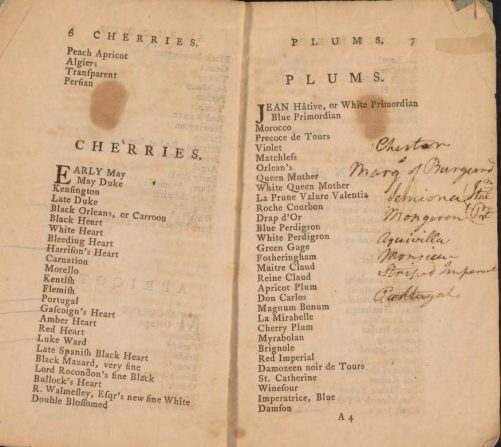 6 CHERRIES.
Peach Apricot
Algiers
Transparent
Persian
CHERRIES.
EARLY May
May Duke
Kensington
Late Duke
Black Orleans, or Carroon
Black Heart
White Heart
Bleeding Heart
Harrison's Heart
Carnation
Morello
Kentish
Flemish
Portugal
Gascoign's Heart
Amber Heart
Red Heart
Luke Ward
Late Spanish Black Heart
Black Mazard, very fine
Lord Rocondon's fine Black
Bullock's Heart
R. Walmesley, Esqr's new fine White
Double Blossomed
PLUMS. 7
PLUMS.
JEAN Hâtive, or White Primordian
Blue Primordian
Morocco
Precoce de Tours
Violet
Matchless
Orlean's
Queen Mother
White Queen Mother
La Prune Valure Valentia
Roche Courbon
Drap d'Or
Blue Perdigron
White Perdigron
Green Gage
Fotheringham
Maitre Claud
Reine Claud
Apricot Plum
Don Carlos
Magnum Bonum
La Mirabelle
Cherry Plum
Myrabolan
Brignole
Red Imperial
Damozeen noir de Tours
St. Catherine
Winesour
Imperatrice, Blue
Damson
A 4
Cheston
Marq of Burgund
Semiona
Mongeron
Monsieur
Striped Imperial